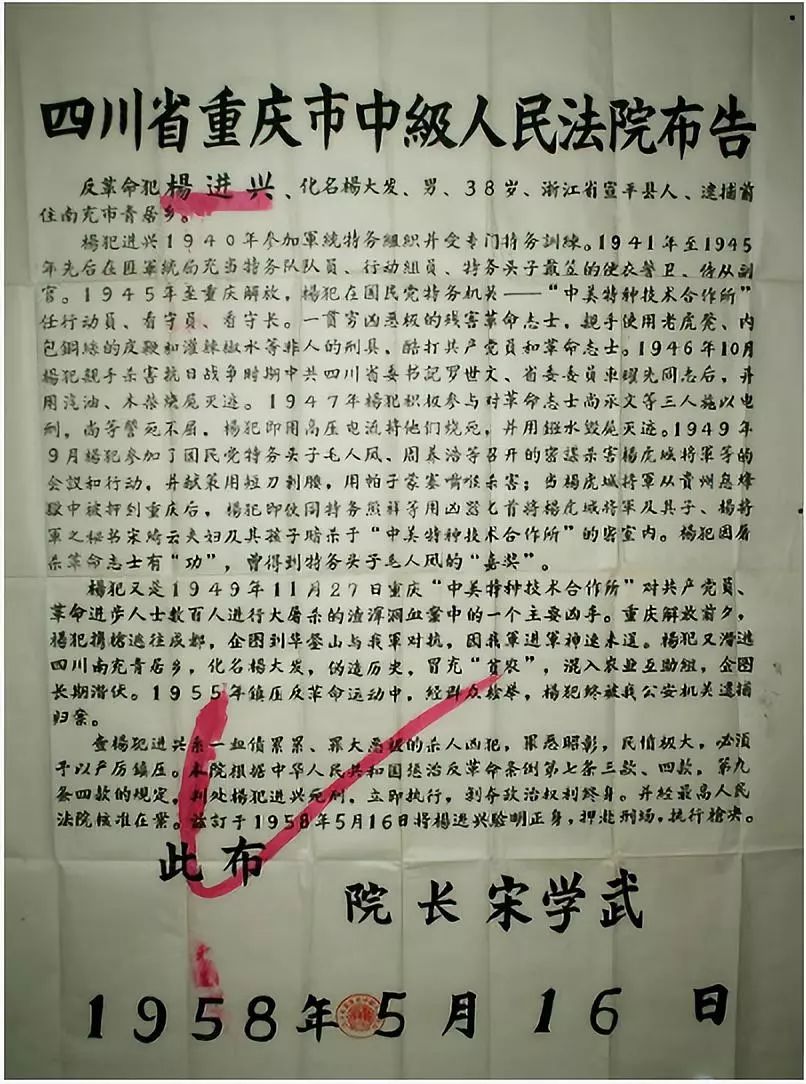 四川省重庆市中級人民法院布告
反革命犯楊进兴、化名楊大发、男、38岁、浙江省宣平县人、逮捕前
住南充市青居乡。
楊犯进兴1940年参加軍統特务組織幷受专门特务訓練。1941年至1945
年先后在匪軍統局充当特务队队員、行动組員、特务头子戴笠的便衣警卫、侍从副
官。1945年至重庆解放,楊犯在国民党特务机关——“中美特种技术合作所”
任行动員、看守員、看守长。一貫穷凶恶极的残害革命志士,親手使用老虎凳、内
包鋼絲的皮鞭和灌辣椒水等非人的刑具,酷打共产党員和革命志士。1946年10月
楊犯親手杀害抗日战争时期中共四川省委书記罗世文、省委委員車耀先同志后,幷
用汽油、木柴焚尾灭迹。1947年楊犯积极参与对革命志士尚承文等三人施以电
刑,尚等警死不屈,楊犯即用高压电流将他们烧死,幷用鏹水毁尾灭迹。1949年
9月楊犯参加了国民党特务头子毛人凤、周养浩等召开的密謀杀害楊虎城将軍等的
会議和行动,幷献策用短刀刺腹,用帕子蒙塞嘴喉杀害;当楊虎城将軍从貴州息烽
獄中被押到重庆后,楊犯即伙同特务熊祥等用凶器匕首将楊虎城将軍及其子、楊将
軍之秘书宋綺云夫妇及其孩子暗杀于“中美特种技术合作所”的密室内。楊犯因屠
杀革命志士有“功”,曾得到特务头子毛人凤的“嘉奖”。
楊犯又是1949年11月27日重庆“中美特种技术合作所”对共产党員、
革命进步人士数百人进行大屠杀的渣滓洞血案中的一个主要凶手。重庆解放前夕,
楊犯携槍逃往成都,企图到华蓥山与我軍对抗,因我軍进軍神速未逞。楊犯又潜逃
四川南充青居乡,化名楊大发,伪造历史,冒充“貧农”,混入农业互助組,企图
长期潜伏。1955年鎮压反革命运动中,經群众检举,楊犯終被我公安机关逮捕
归案。
查楊犯进兴系一血债累累、罪大恶极的杀人凶犯,罪恶昭彰,民愤极大,必須
予以严厉鎮压。本院根据中华人民共和国惩治反革命条例第七条三款、四款,第九
条四款的規定,判处楊犯进兴死刑,立即执行,剥夺政治权利終身。幷經最高人民
法院核准在案。茲訂于1958年5月16日将楊进兴驗明正身,押赴刑场,执行槍决。
此布
院长宋学武
1958年5月16日